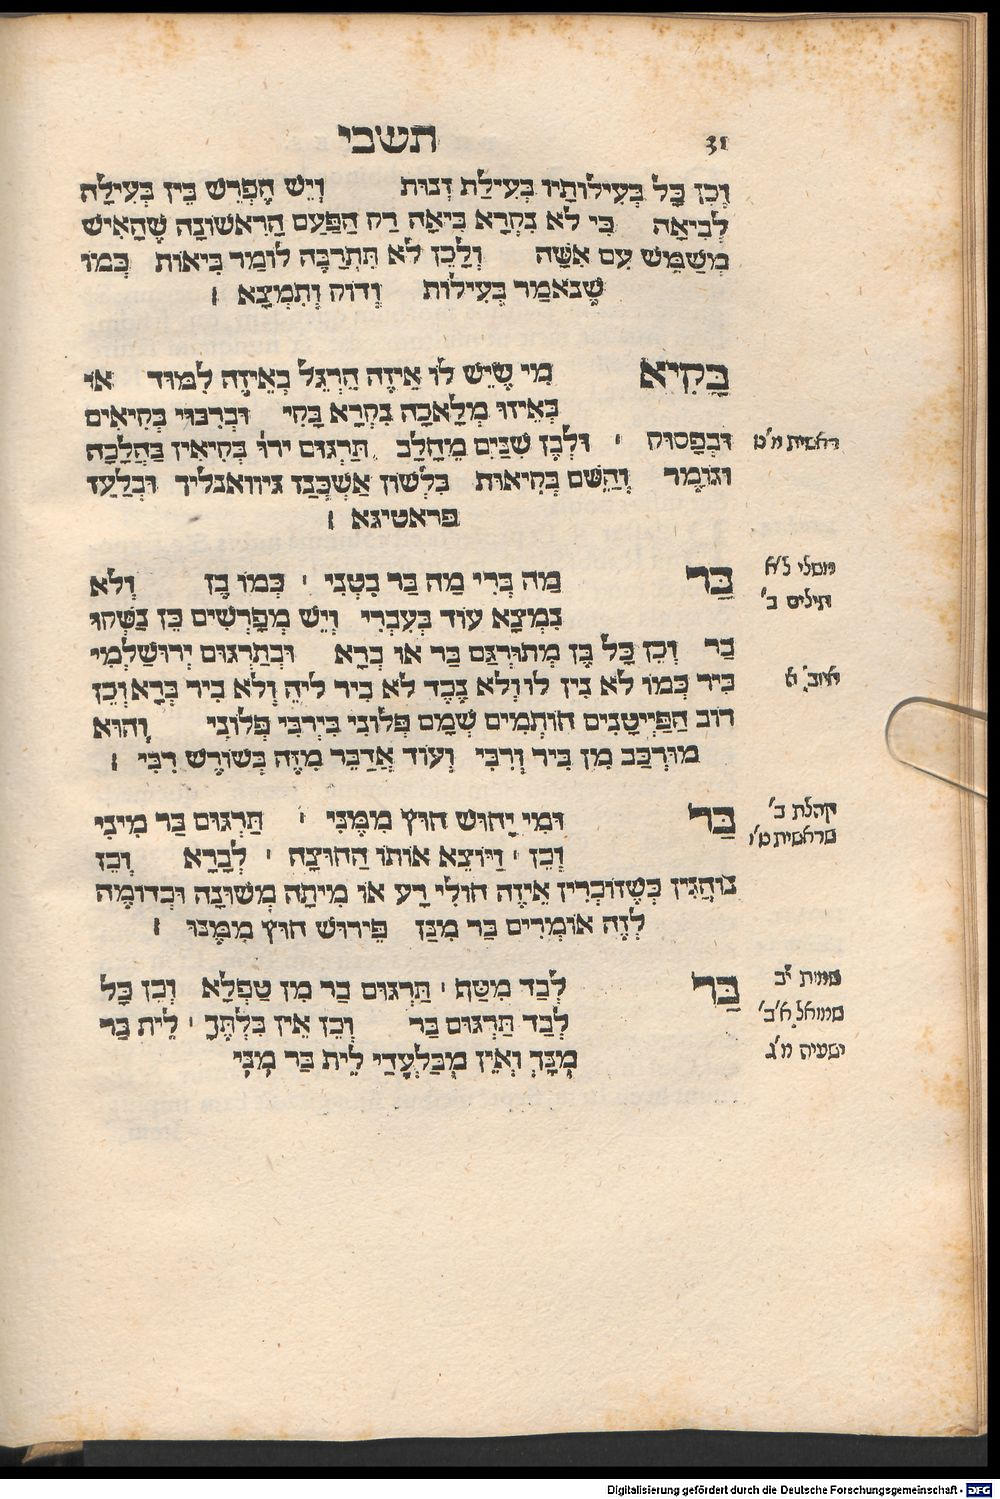 תשבי
31
וְכֵן כָּל בְּעִילוֹתָיו בְּעִילַת זְנוּת וְיֵשׁ הֶפְרֵשׁ בֵּין בְּעִילָה
לְבִיאָה כִּי לֹא נִקְרָא בִּיאָה רַק הַפַּעַם הָרִאשׁוֹנָה שֶׁהָאִישׁ
מְשַׁמֵּשׁ עִם אִשָּׁה וְלָכֵן לֹא תִּתְרַבֶּה לוֹמַר בִּיאוֹת כְּמוֹ
שֶׁנֹּאמַר בְּעִילוֹת וְדוֹק וְתִמְצָא ׀
בָּקִיא מִי שֶׁיֵּשׁ לוֹ אֵיזֶה הֶרְגֵּל בְּאֵיזֶה לִמּוּד אוֹ
בְּאֵיזוֹ מְלָאכָה נִקְרָא בָּקִי וּבְרִבּוּי בְּקִיאִים
וּבְפָסוּק ׀ וּלְבֶן שִׁנַּיִם מֵחָלָב תַּרְגּוּם ירו' בְּקִיאִין בַּהֲלָכָה
בראשית מ'ט
וְגוֹמֵר וְהַשֵּׁם בְּקִיאוּת בִּלְשׁוֹן אַשְׁכְּנַז גיוואנליך וּבְלַעַז
פראטיגא ׀
בַּר מַה בְּרִי מַה בַּר בִּטְנִי ׀ כְּמוֹ בֶּן וְלֹא
משלי ל'א
נִמְצָא עוֹד בְּעִבְרִי וְיֵשׁ מְפָרְשִׁים כֵּן נַשְּׁקוּ
תילים ב'
בַר וְכֵן כָּל בֶּן מְתוּרְגָּם בַּר אוֹ בְּרָא וּבְתַרְגּוּם יְרוּשַׁלְמִי
בִּיר כְּמוֹ לֹא נִין לוֹ וְלֹא נֶכֶד לֹא בִיר לֵיהּ וְלֹא בִיר בְּרָא וְכֵן
איוב' א
רוֹב הַפַּיְיטָנִים חוֹתְמִים שְׁמָם פְּלוֹנִי בִּירְבִּי פְּלוֹנִי וְהוּא
מוּרְכַּב מִן בִּיר וְרִבִּי וְעוֹד אֲדַבֵּר מִזֶּה בְּשׁוֹרֶשׁ רִבִּי ׀
בַּר וּמִי יָחוּשׁ חוּץ מִמֶּנִּי ׀ תַּרְגּוּם בַּר מִינִי
קהלת ב'
בראשית ט'ו
וְכֵן ׀ וַיּוֹצֵא אוֹתוֹ הַחוּצָה ׀ לְבָרָא וְכֵן
נוֹהֲגִין כְּשֶׁזּוֹכְרִין אֵיזֶה חוֹלִי רַע אוֹ מִיתָה מְשׁוּנָה וּכְדוֹמֶה
לְזֶה אוֹמְרִים בַּר מִנַּן פֵּירוּשׁ חוּץ מִמֶּנּוּ ׀
בַּר לְבַד מִטַּף ׀ תַּרְגּוּם בַּר מִן טַפְלָא וְכֵן כָּל
שמות י'ב
לְבַד תַּרְגּוּם בַּר וְכֵן אֵין בִּלְתֶּךָ ׀ לֵית בַּר
שמואל א'ב'
מִנָּךְ וְאֵין מִבַּלְעָדַי לֵית בַּר מִנִּי
ישעיה מ'ג
Digitalisierung gefördert durch die Deutsche Forschungsgemeinschaft - DFG